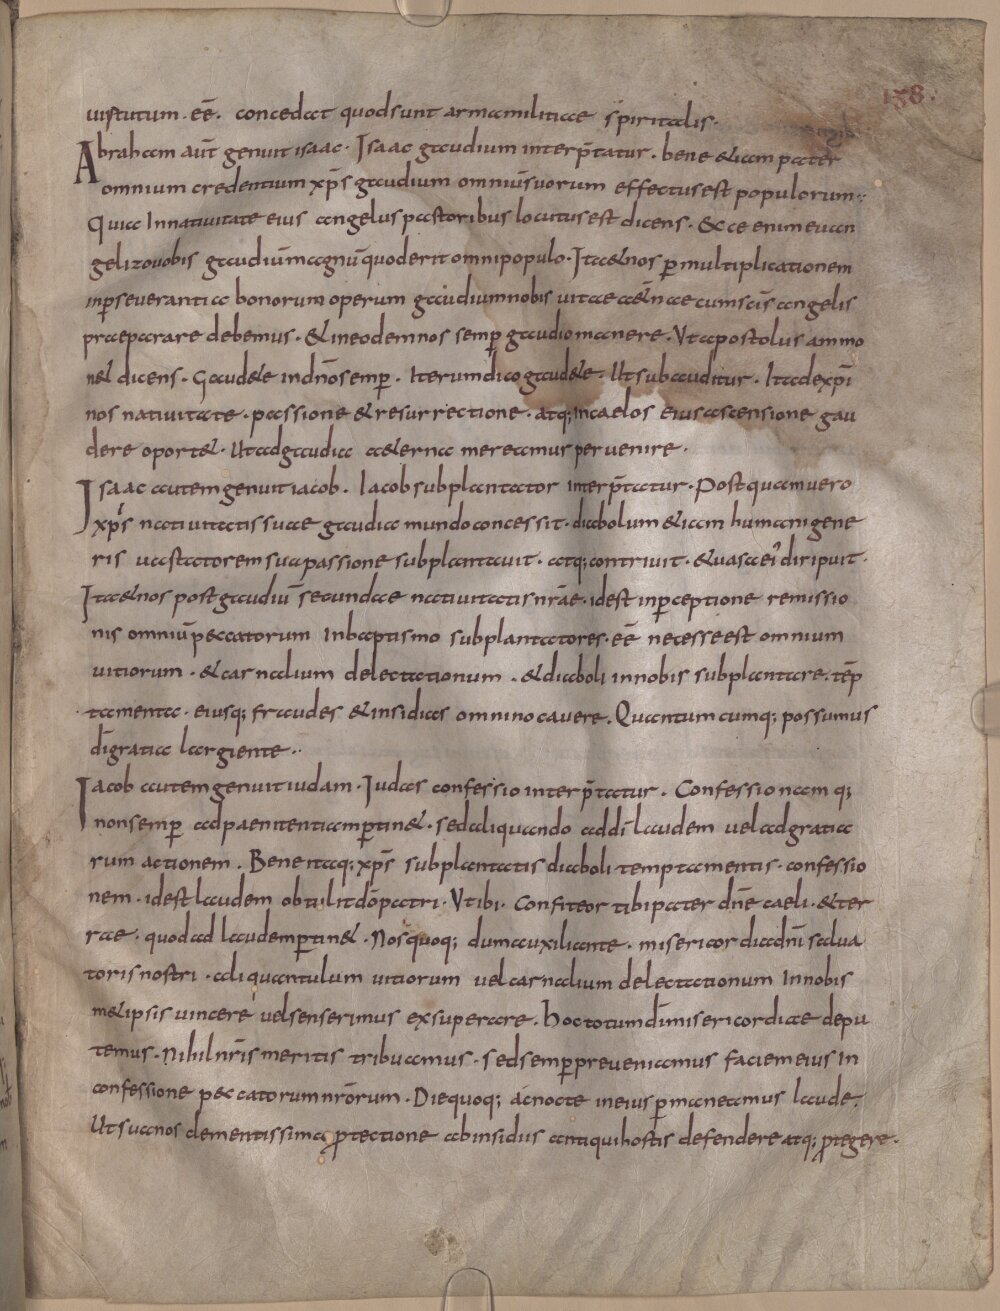 158.
uirtutum. eē. concedat quod sunt arma militiae spiritalis.
Abraham aut̄ genuit isaac. Isaac gaudium interp̄tatur. bene & iam pater
omnium credentium xp̄s gaudium omniū suorum effectus est populorum.
Quia In natiuitate eius angelus pastoribus locutus est dicens. Ecce enim euan
gelizo uobis gaudiū magnū quod erit omni populo. Ita & nos ꝑ multiplicationem
inꝑseuerantia bonorum operum gaudium nobis uitae aet̄nae cum sc̄is angelis
praeparare debemus. & in eodem nos semꝑ gaudio manere. Vt apostolus ammo
n& dicens. Gaud&e in dn̄o semꝑ. Iterum dico gaud&e. Ut subauditur. Ita de xp̄i
nos natiuitate. passione & resurrectione. atq; in caelos eius ascensione gau
dere oport&. Ut ad gaudia aeterna mereamur peruenire.
Isaac autem genuit iacob. Iacob subplantator interp̄tatur. Postquam uero
xp̄s natiuitatis suae gaudia mundo concessit. diabolum & iam humani gene
ris uastatorem sua passione subplantauit. atq; contriuit. & uasa ei' diripuit.
Ita & nos post gaudiū secundae natiuitatis nr̄ae. id est inꝑceptione remissio
nis omniū peccatorum In baptismo subplantatores. eē necesse est omnium
uitiorum. & carnalium delectationum. & diaboli in nobis subplantare. tēp
tamenta. eiusq; fraudes & insidias omnino cauere. Quantumcumq; possumus
dī gratia largiente.
Iacob autem genuit iudam. Iudas confessio interp̄tatur. Confessio namq;
non semꝑ ad paenitentiam ꝑtin&. sed aliquando ad dī laudem uel ad gratia
rum actionem. Bene itaq; xp̄s subplantatis diaboli temptamentis. confessio
nem. id est laudem obtulit dō patri. Vt ibi. Confiteor tibi pater dn̄e caeli. & ter
rae. quod ad laudem ꝑtin&. Nos quoq; dum auxiliante. misericordia dn̄i salua
toris nostri. aliquantulum uitiorum uel carnalium delectationum In nobis
m&ipsis uincere uel senserimus exsuperare. hoc totum dī misericordiae depu
temus. Nihil nr̄is meritis tribuamus. sed semꝑ preueniamus faciem eius in
confessione peccatorum nr̄orum. Die quoq; ac nocte in eius ꝑmaneamus laude.
Ut sua nos clementissima ꝓtectione ab insidiis antiqui hostis defendere atq; ꝓtegere.